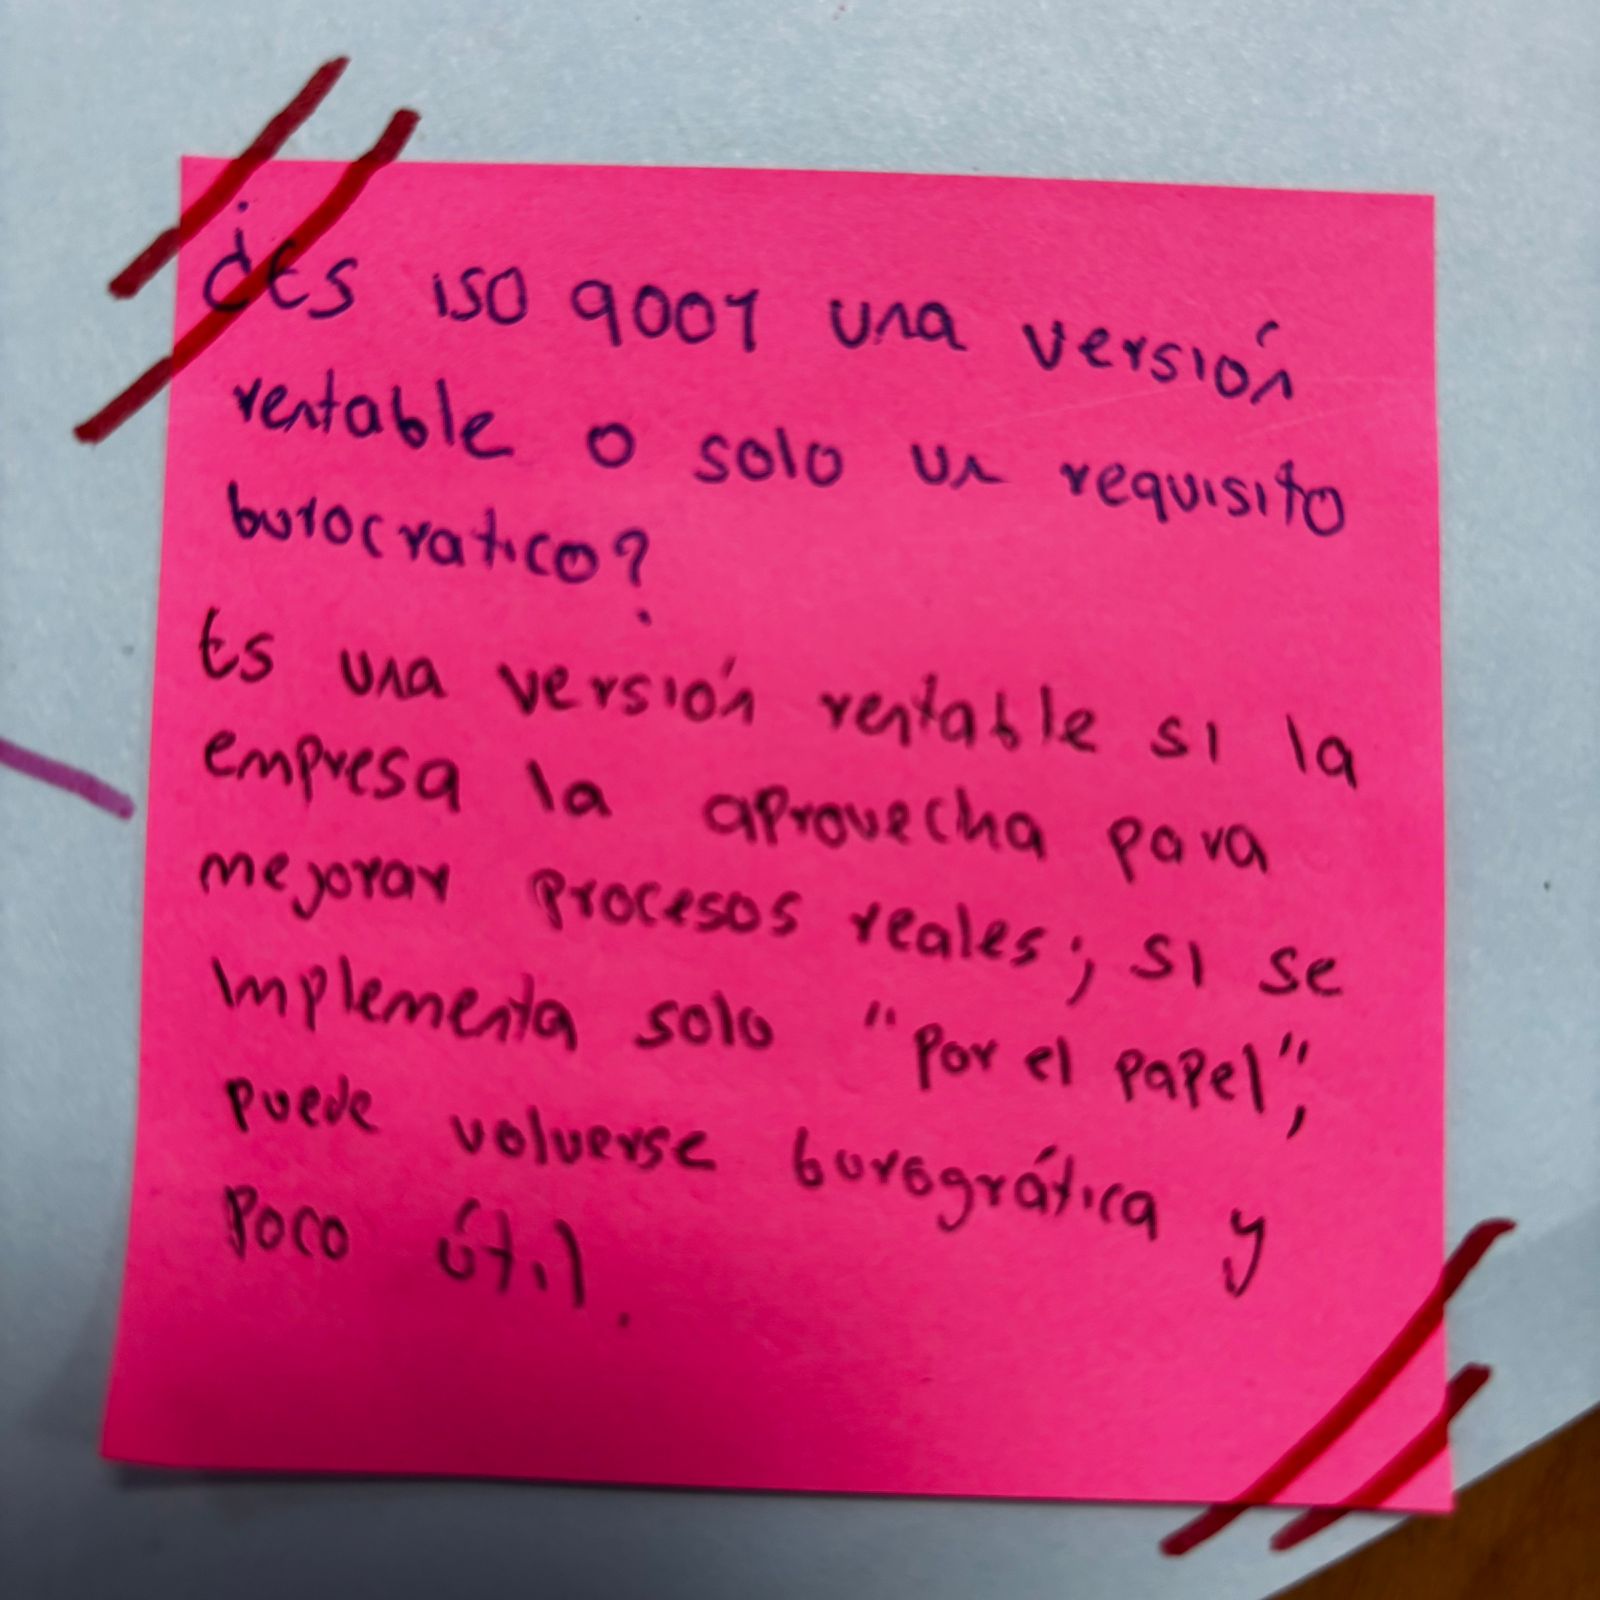 ¿Es ISO 9001 una versión
rentable o solo un requisito
burocratico?
Es una versión rentable si la
empresa la aprovecha para
mejorar procesos reales; si se
implementa solo "por el papel",
puede volverse burogrática y
poco útil.